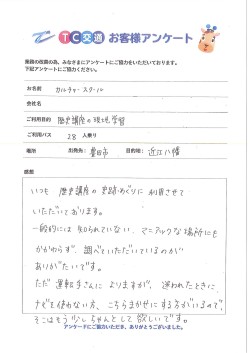 TC交通 お客様アンケート
業務の改善の為、みなさまにアンケートにご協力をいただいております。
下記アンケートにご協力ください。
お名前 カルチャースクール
会社名
ご利用目的 歴史講座の現地学習
ご利用バス 28 人乗り
場所 出発先: 豊田市 目的地: 近江八幡
感想
いつも 歴史講座の史跡めぐりに利用させて
いただいております。
一般的には知られていない、マニアックな場所にも
かかわらず、調べていただいているのが
ありがたいです。
ただ 運転手さんに よりますが、迷われたときに
ナビを使わない方、こちらまかせにする方がいるので、
そこはもう少しちゃんとして欲しいです。
アンケートにご協力いただき、ありがとうございました。